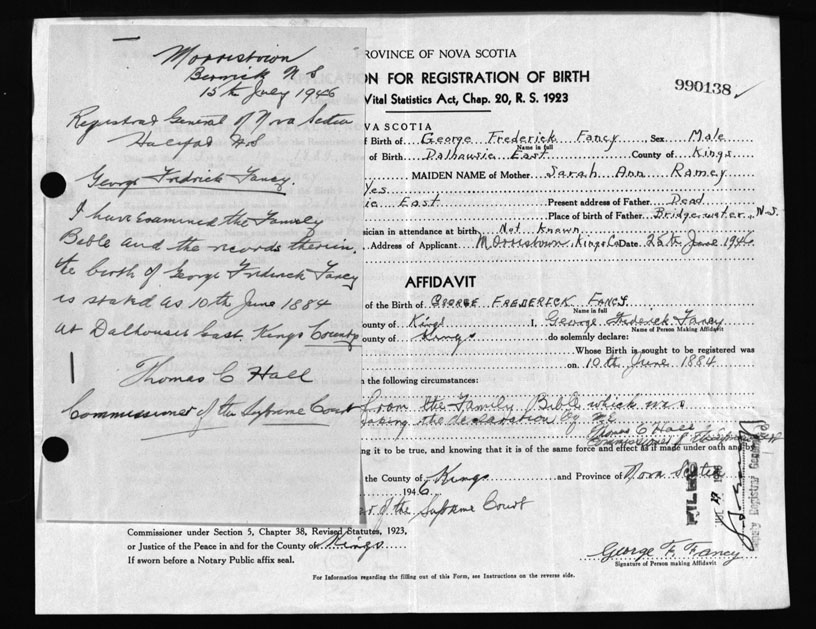 Morristown
Berwick N S
15th July 1946
Registrar General of Nova Scotia
Halifax N S
George Fredrick Fancy.
I have examined the Family
Bible and the records therein.
the birth of George Fredrick Fancy
is stated as 10th June 1884
at Dalhousie East. Kings County
Thomas C Hall
Commissioner of the Supreme Court
ROVINCE OF NOVA SCOTIA
ON FOR REGISTRATION OF BIRTH
990138
Vital Statistics Act, Chap. 20, R. S. 1923
VA SCOTIA
of Birth of George Frederick Fancy Sex Male
Name in full
of Birth Dalhousie East County of Kings
MAIDEN NAME of Mother Sarah Ann Ramey
Yes
East Present address of Father Dead
Place of birth of Father Bridgewater, N.S.
sician in attendance at birth Not Known
Address of Applicant Morristown Kings Co Date 25th June 1946
AFFIDAVIT
of the Birth of GEORGE FREDERICK FANCY
Name in full
ounty of Kings I, George Fredrick Fancy
Name of Person Making Affidavit
ounty of Kings do solemnly declare:
Whose Birth is sought to be registered was
on 10th June 1884
the following circumstances:
from the Family Bible which was
taking the declaration of
Thomas C Hall
Commissioner of the Supreme Court
ng it to be true, and knowing that it is of the same force and effect as if made under oath and by
the County of Kings and Province of Nova Scotia
1946
of the Supreme Court
Commissioner under Section 5, Chapter 38, Revised Statutes, 1923,
or Justice of the Peace in and for the County of Kings
If sworn before a Notary Public affix seal.
FILED
Deputy Registrar General
George F. Fancy
Signature of Person making Affidavit
For Information regarding the filling out of this Form, see Instructions on the reverse side.